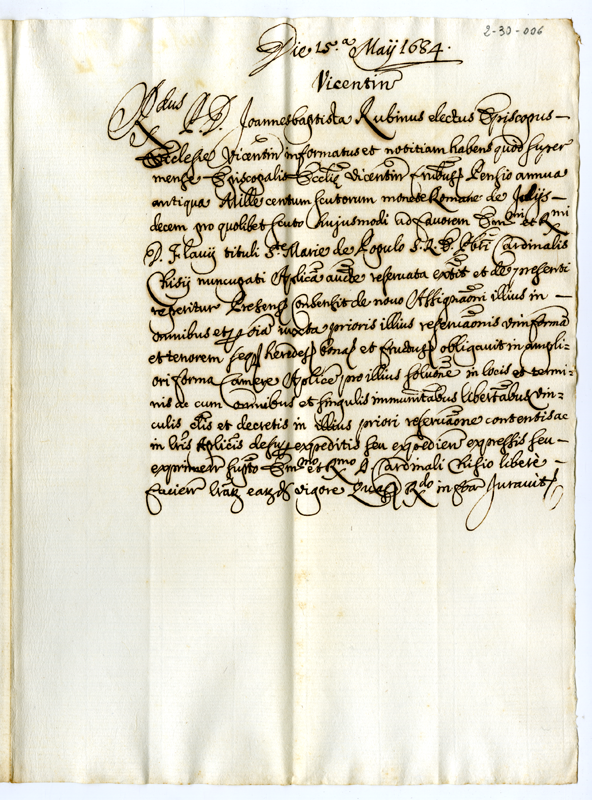 2-30-006
Die 15.a Maij 1684.
Vicentin
Rdus P. D. Joannesbaptista Rubinus electus Episcopus
Ecclesie Vicentin informatus et notitiam habens quod super
mense Episcopalis Ecclie Vicentin fructibus Pensio annua
antiqua Mille centum scutorum monete Romane de Julijs
decem pro quolibet scuto hujusmodi ad favorem Emi et Rmi
D. Flavij tituli Ste Marie de Populo S. R. E. Pbri Cardinalis
Chisij nuncupati Aplica aucte reservata extit et de presenti
reperitur Presens Consensit de novo Assignaoni illius in
omnibus et per oia iuxta prioris illius reservaonis vim formā
et tenorem seqs heredes bona et fructus obligavit in ampli-
ori forma Camere Aplice pro illius solutione in locis et termi-
nis ac cum omnibus et singulis immunitatibus libertatibus vin-
culis aliis et decretis in illius priori reservaone contentis ac
in lris Aplicis desup expeditis seu expedien expressis seu
exprimen supto Emo et Rmo D. Cardinali Chisio liberè
facien vigore Rdo in for Juravit